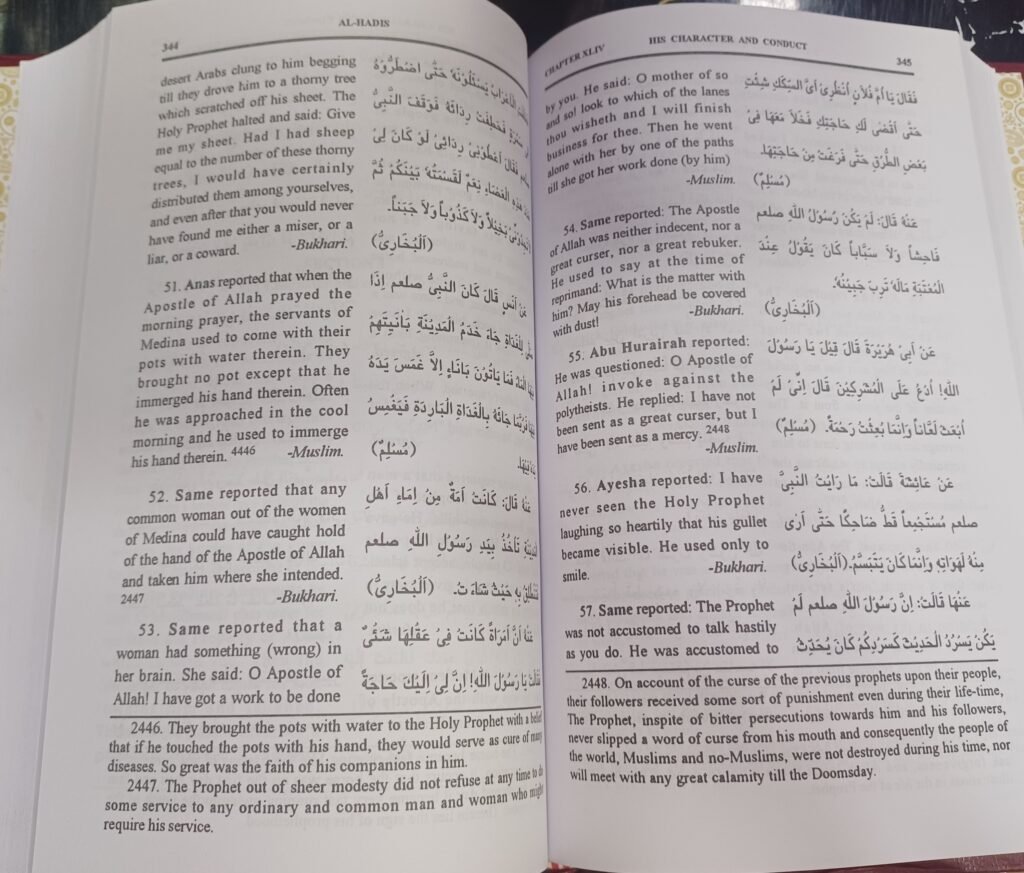 344
AL-HADIS
desert Arabs clung to him begging
till they drove him to a thorny tree
which scratched off his sheet. The
Holy Prophet halted and said: Give
me my sheet. Had I had sheep
equal to the number of these thorny
trees, I would have certainly
distributed them among yourselves,
and even after that you would never
have found me either a miser, or a
liar, or a coward. -Bukhari.
الْأَعْرَابُ يَسْئَلُوْنَهٗ حَتّٰى اضْطَرُّوْهُ
فَخَطِفَتْ رِدَائَهٗ فَوَقَفَ النَّبِىُّ
فَقَالَ اَعْطُوْنِىْ رِدَائِىْ لَوْ كَانَ لِىْ
هٰذِهِ الْعَضَاءِ نَعَمٌ لَقَسَمْتُهٗ بَيْنَكُمْ ثُمَّ
بَخِيْلاً وَلاَ كَذُوْباً وَلاَ جَبَناً.
(اَلْبُخَارِىُّ)
51. Anas reported that when the
Apostle of Allah prayed the
morning prayer, the servants of
Medina used to come with their
pots with water therein. They
brought no pot except that he
immerged his hand therein. Often
he was approached in the cool
morning and he used to immerge
his hand therein. 4446 -Muslim.
عَنْ اَنَسٍ قَالَ كَانَ النَّبِىُّ صلعم اِذَا
لِلْغَدَاةِ جَاءَ خَدَمُ الْمَدِيْنَةِ بِاٰنِيَتِهِمْ
فَمَا يَاْتُوْنَ بِاَنَاءٍ اِلاَّ غَمَسَ يَدَهُ
جَائَهُ بِالْغَدَاةِ الْبَارِدَةِ فَيَغْمِسُ
(مُسْلِمٌ)
52. Same reported that any
common woman out of the women
of Medina could have caught hold
of the hand of the Apostle of Allah
and taken him where she intended.
2447 -Bukhari.
عَنْهُ قَالَ: كَانَتْ اَمَةٌ مِنْ اِمَاءِ اَهْلِ
تَأْخُذُ بِيَدِ رَسُوْلِ اللّٰهِ صلعم
بِهِ حَيْثُ شَاءَتْ. (اَلْبُخَارِىُّ)
53. Same reported that a
woman had something (wrong) in
her brain. She said: O Apostle of
Allah! I have got a work to be done
عَنْهُ اَنَّ اَمْرَاَةً كَانَتْ فِىْ عَقْلِهَا شَئٌْ
يَا رَسُوْلَ اللّٰهِ! اِنَّ لِىْ اِلَيْكَ حَاجَةً
2446. They brought the pots with water to the Holy Prophet with a belief
that if he touched the pots with his hand, they would serve as cure of many
diseases. So great was the faith of his companions in him.
2447. The Prophet out of sheer modesty did not refuse at any time to do
some service to any ordinary and common man and woman who might
require his service.
CHAPTER XLIV
HIS CHARACTER AND CONDUCT
345
by you. He said: O mother of so
and so! look to which of the lanes
thou wisheth and I will finish
business for thee. Then he went
alone with her by one of the paths
till she got her work done (by him)
-Muslim.
فَقَالَ يَا اُمَّ فُلاَنٍ اُنْظُرِىْ اَىَّ السِّكَكِ شِئْتِ
حَتّٰى اَقْضٰى لَكِ حَاجَتِكِ فَخَلاَ مَعَهَا فِىْ
بَعْضِ الطُّرُقِ حَتّٰى فَرَغَتْ مِنْ حَاجَتِهَا.
(مُسْلِمٌ)
54. Same reported: The Apostle
of Allah was neither indecent, nor a
great curser, nor a great rebuker.
He used to say at the time of
reprimand: What is the matter with
him? May his forehead be covered
with dust! -Bukhari.
عَنْهُ قَالَ: لَمْ يَكُنْ رَسُوْلُ اللّٰهِ صلعم
فَاحِشاً وَلاَ سَبَّاباً كَانَ يَقُوْلُ عِنْدَ
الْمُعْتَبَةِ مَالَهٗ تَرِبَ جَبِيْنُهٗ.
(اَلْبُخَارِىُّ)
55. Abu Hurairah reported:
He was questioned: O Apostle of
Allah! invoke against the
polytheists. He replied: I have not
been sent as a great curser, but I
have been sent as a mercy. 2448
-Muslim.
عَنْ اَبِىْ هُرَيْرَةَ قَالَ قِيْلَ يَا رَسُوْلَ
اللّٰهِ! اُدْعُ عَلَى الْمُشْرِكِيْنَ قَالَ اِنِّىْ لَمْ
اُبْعَثْ لَعَّاناً وَاِنَّمَا بُعِثْتُ رَحْمَةً. (مُسْلِمٌ)
56. Ayesha reported: I have
never seen the Holy Prophet
laughing so heartily that his gullet
became visible. He used only to
smile. -Bukhari.
عَنْ عَائِشَةَ قَالَتْ: مَا رَاَيْتُ النَّبِىَّ
صلعم مُسْتَجْمِعاً قَطُّ ضَاحِكًا حَتّٰى اَرٰى
مِنْهُ لَهَوَاتِهِ وَاِنَّمَا كَانَ يَتَبَسَّمُ.(اَلْبُخَارِىُّ)
57. Same reported: The Prophet
was not accustomed to talk hastily
as you do. He was accustomed to
عَنْهَا قَالَتْ: اِنَّ رَسُوْلَ اللّٰهِ صلعم لَمْ
يَكُنْ يَسْرُدُ الْحَدِيْثَ كَسَرْدِكُمْ كَانَ يُحَدِّثُ
2448. On account of the curse of the previous prophets upon their people,
their followers received some sort of punishment even during their life-time,
The Prophet, inspite of bitter persecutions towards him and his followers,
never slipped a word of curse from his mouth and consequently the people of
the world, Muslims and no-Muslims, were not destroyed during his time, nor
will meet with any great calamity till the Doomsday.